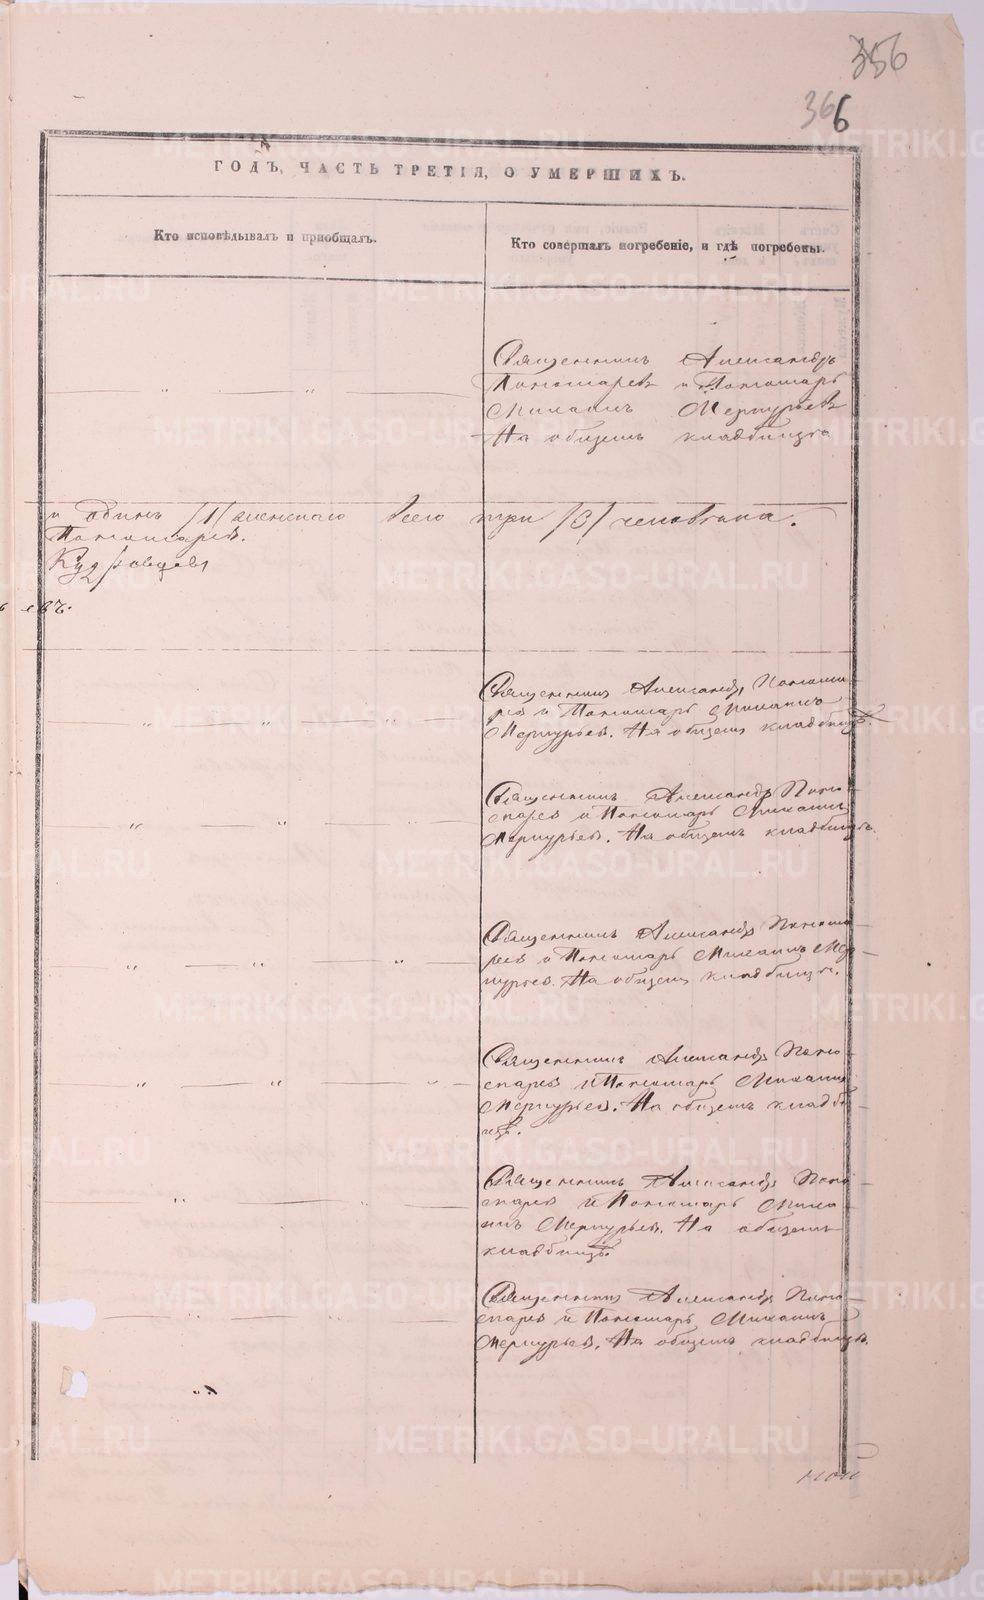 356
366
ГОДЪ, ЧАСТЬ ТРЕТІЯ, О УМЕРШИХЪ.
Кто исповѣдывалъ и пріобщалъ.
Кто совершалъ погребеніе, и гдѣ погребены.
Священникъ Александръ
Пономаревъ и Пономарь
Михаилъ Меркурьевъ
На общемъ кладбищѣ
и одинъ /1/ женскаго всего три /3/ человѣка.
Пономаревъ.
Кудрявцевъ
евъ.
Священникъ Александръ Понома-
ревъ и Пономарь Михаилъ
Меркурьевъ. На общемъ кладбищѣ.
Священникъ Александръ Поно-
маревъ и Пономарь Михаилъ
Меркурьевъ. На общемъ кладбищѣ.
Священникъ Александръ Понома-
ревъ и Пономарь Михаилъ Мер-
курьевъ. На общемъ кладбищѣ.
Священникъ Александръ Поно-
маревъ и Пономарь Михаилъ
Меркурьевъ. На общемъ кладби-
щѣ.
Священникъ Александръ Поно-
маревъ и Пономарь Миха-
илъ Меркурьевъ. На общемъ
кладбищѣ.
Священникъ Александръ Поно-
маревъ и Пономарь Михаилъ
Меркурьевъ. На общемъ кладбищѣ.
METRIKI.GASO-URAL.RU